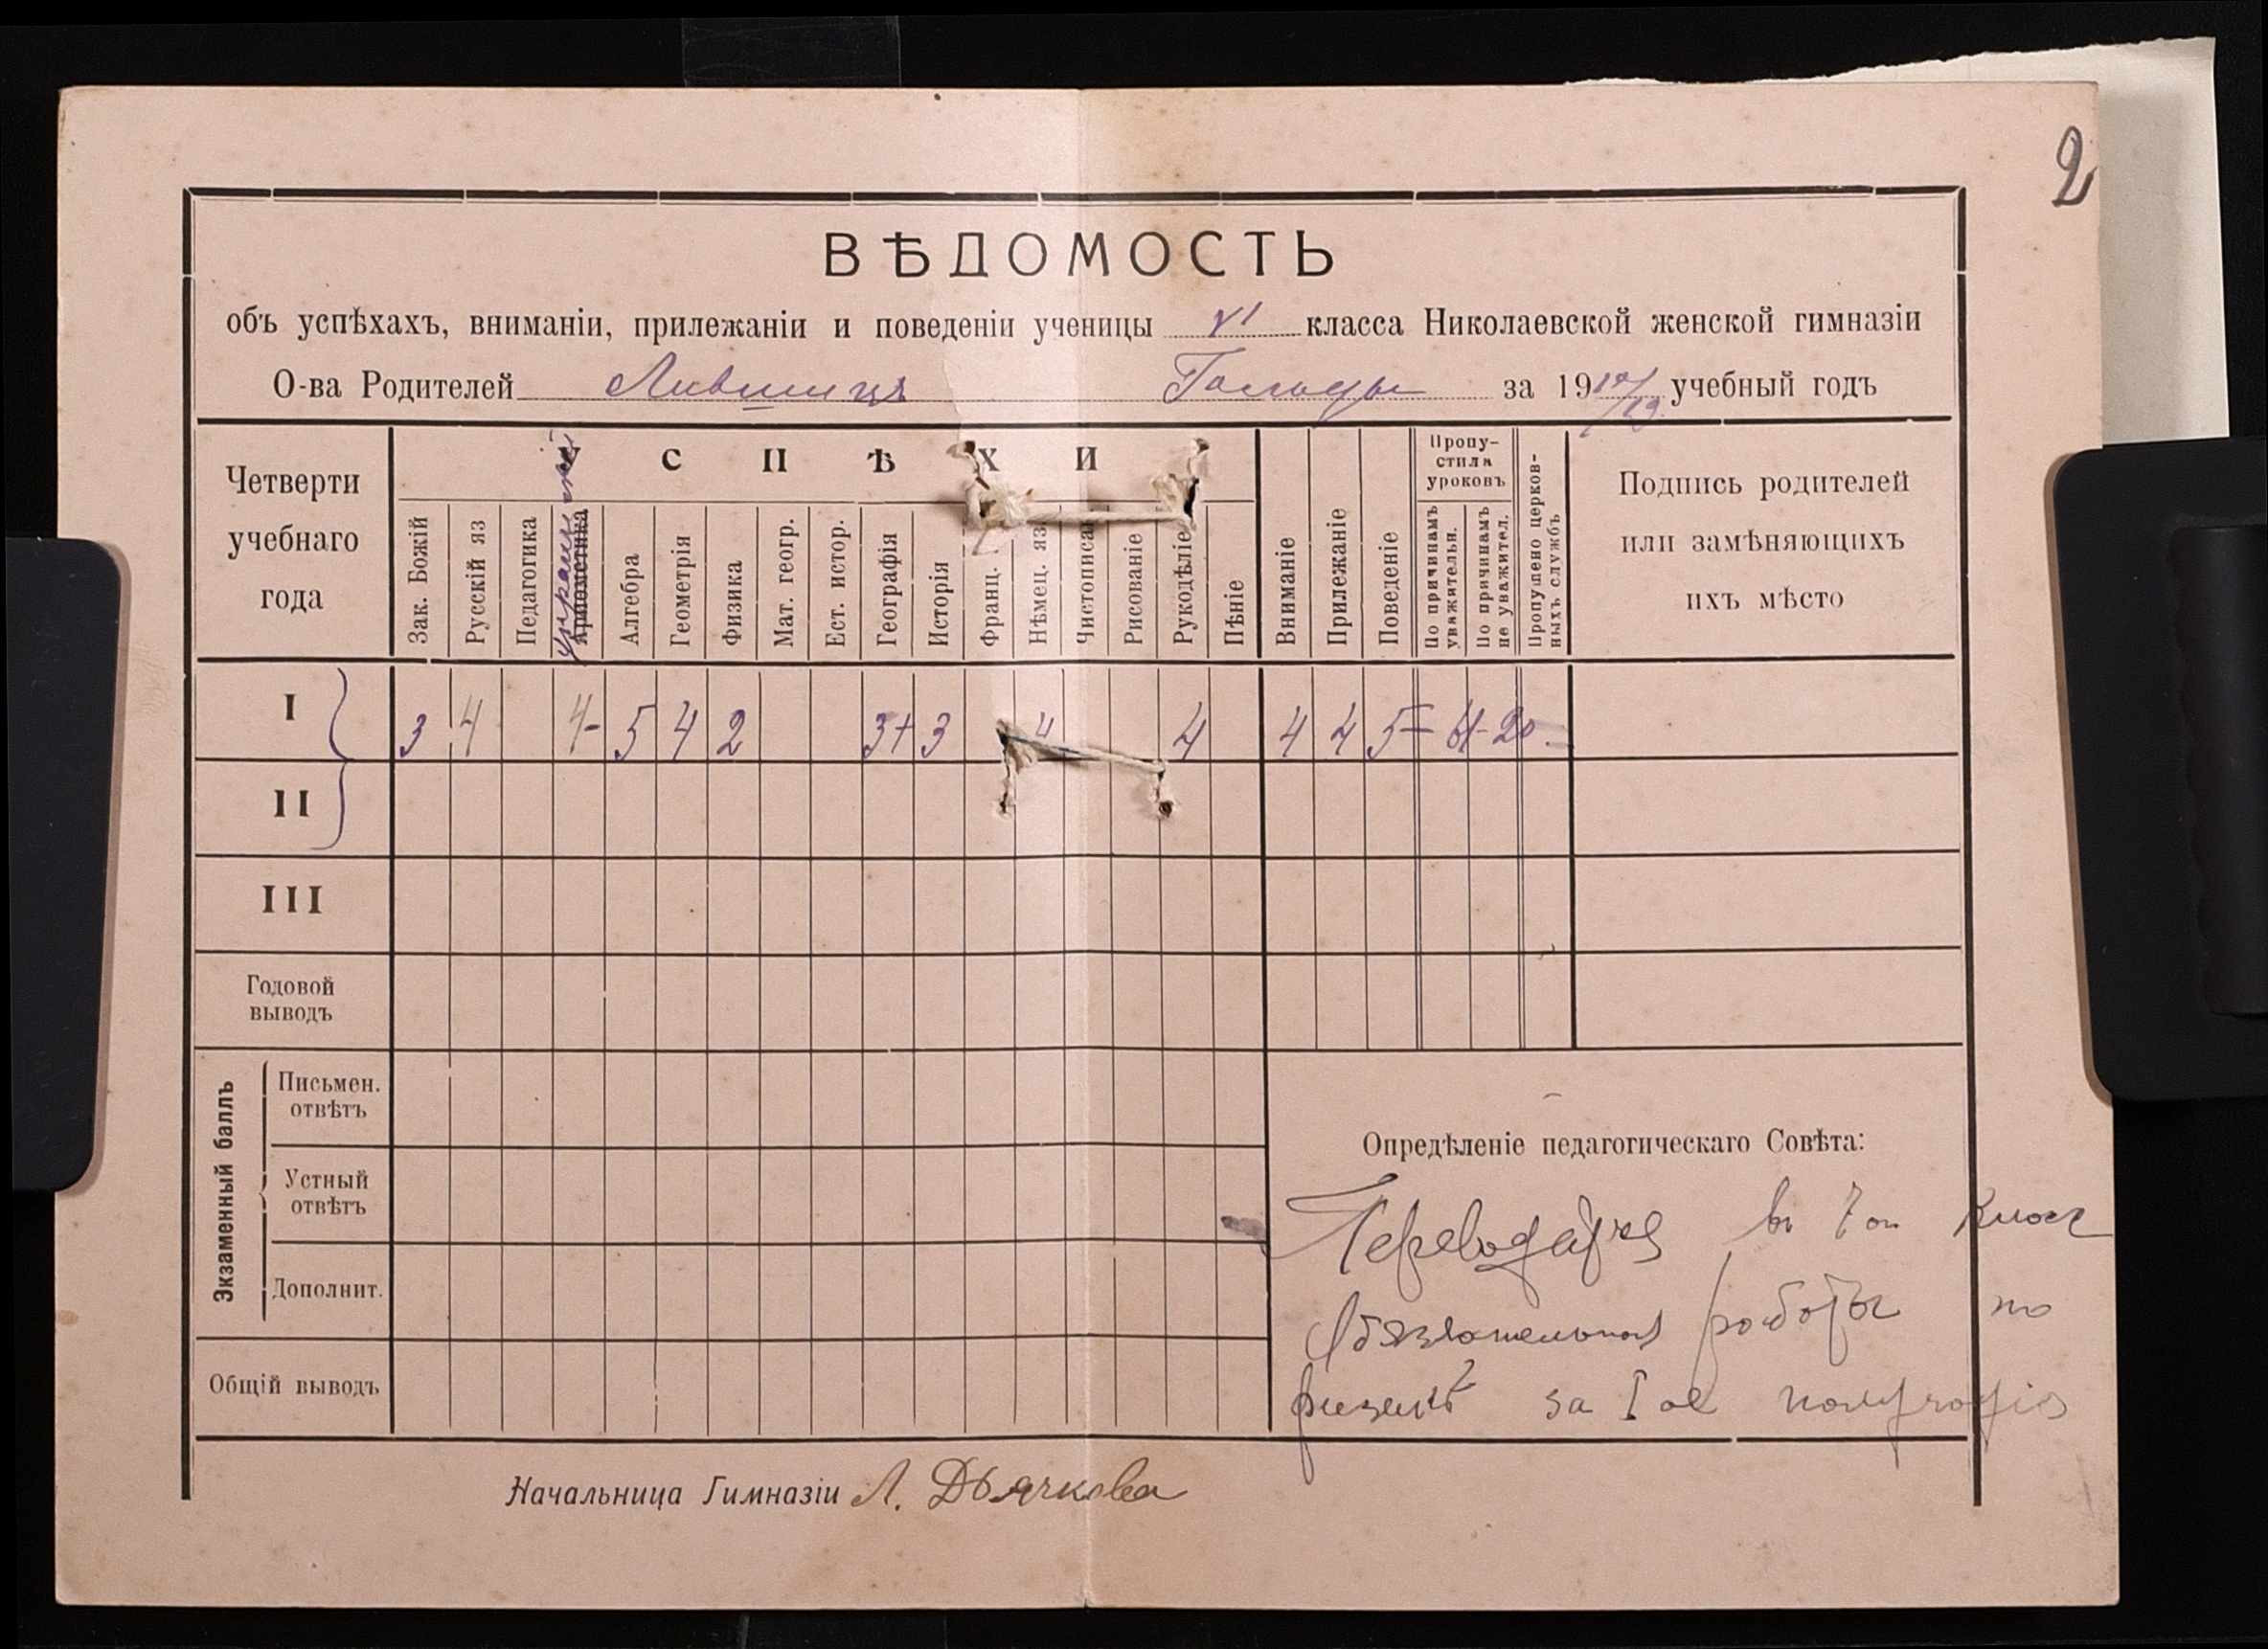 2
ВѢДОМОСТЬ
объ успѣхахъ, вниманіи, прилежаніи и поведеніи ученицы VI класса Николаевской женской гимназіи
О-ва Родителей Лившицъ за 19 /19 учебный годъ
Четверти учебнаго года
УСПѢХИ
Зак. Божій
Русскій яз
Педагогика
Ариѳметика
Алгебра
Геометрія
Физика
Мат. геогр.
Ест. истор.
Географія
Исторія
Франц.
Нѣмец. яз.
Чистописан
Рисованіе
Рукодѣліе
Пѣніе
Вниманіе
Прилежаніе
Поведеніе
Пропустила уроковъ
По причинамъ уважительн.
По причинамъ не уважител.
Пропущено церковныхъ службъ
Подпись родителей
или замѣняющихъ
ихъ мѣсто
I 3 4 4- 5 4 2 3+ 3 4 4 4 4 5 20
II
III
Годовой
выводъ
Экзаменный баллъ
Письмен.
отвѣтъ
Устный
отвѣтъ
Дополнит.
Общій выводъ
Опредѣленіе педагогическаго Совѣта:
Переводится въ 7 ой класс
Обязательная работы по
физикѣ за I ое полугодіе
Начальница Гимназіи Л. Дьячкова